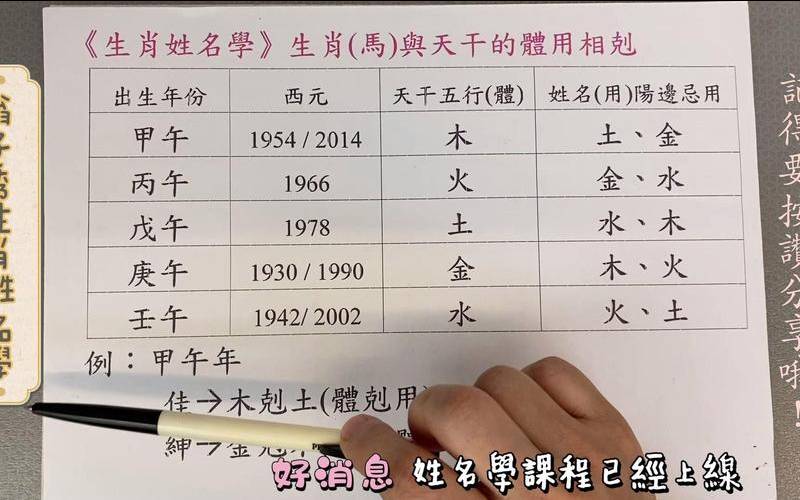 《生肖姓名學》生肖(馬)與天干的體用相剋
出生年份 西元 天干五行(體) 姓名(用)陽邊忌用
甲午 1954 / 2014 木 土、金
丙午 1966 火 金、水
戊午 1978 土 水、木
庚午 1930 / 1990 金 木、火
壬午 1942/ 2002 水 火、土
例：甲午年
佳→木剋土(體剋用)
紳→金剋
生肖姓名學
記得要按讚分享哦！
好消息 姓名學課程已經上線